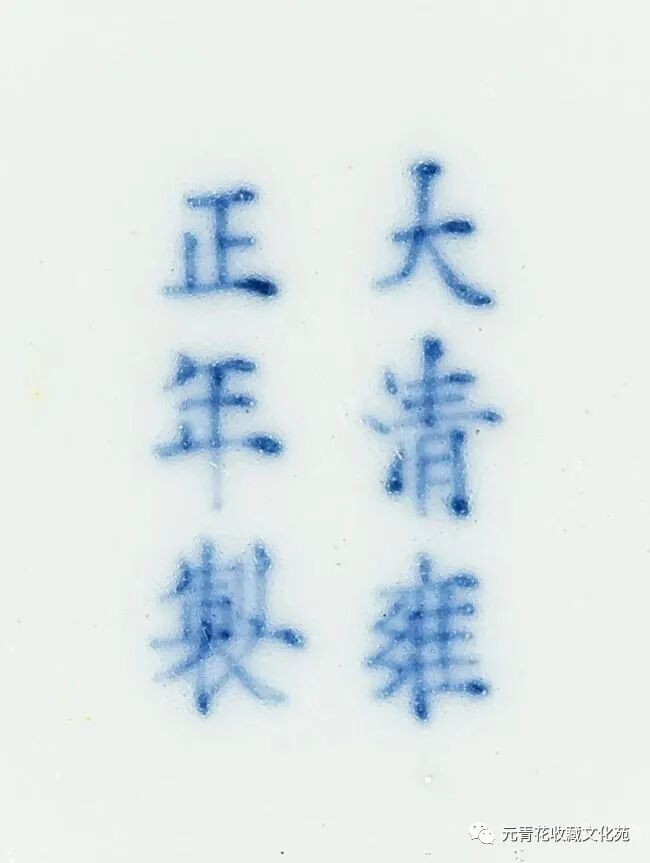 大清雍
正年製
元青花收藏文化苑